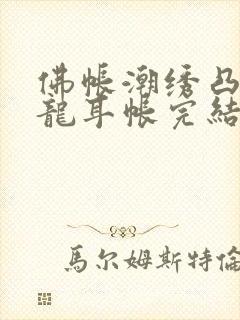 佛帐潮绣凸
龍耳帐完結
馬尔姆斯特倫